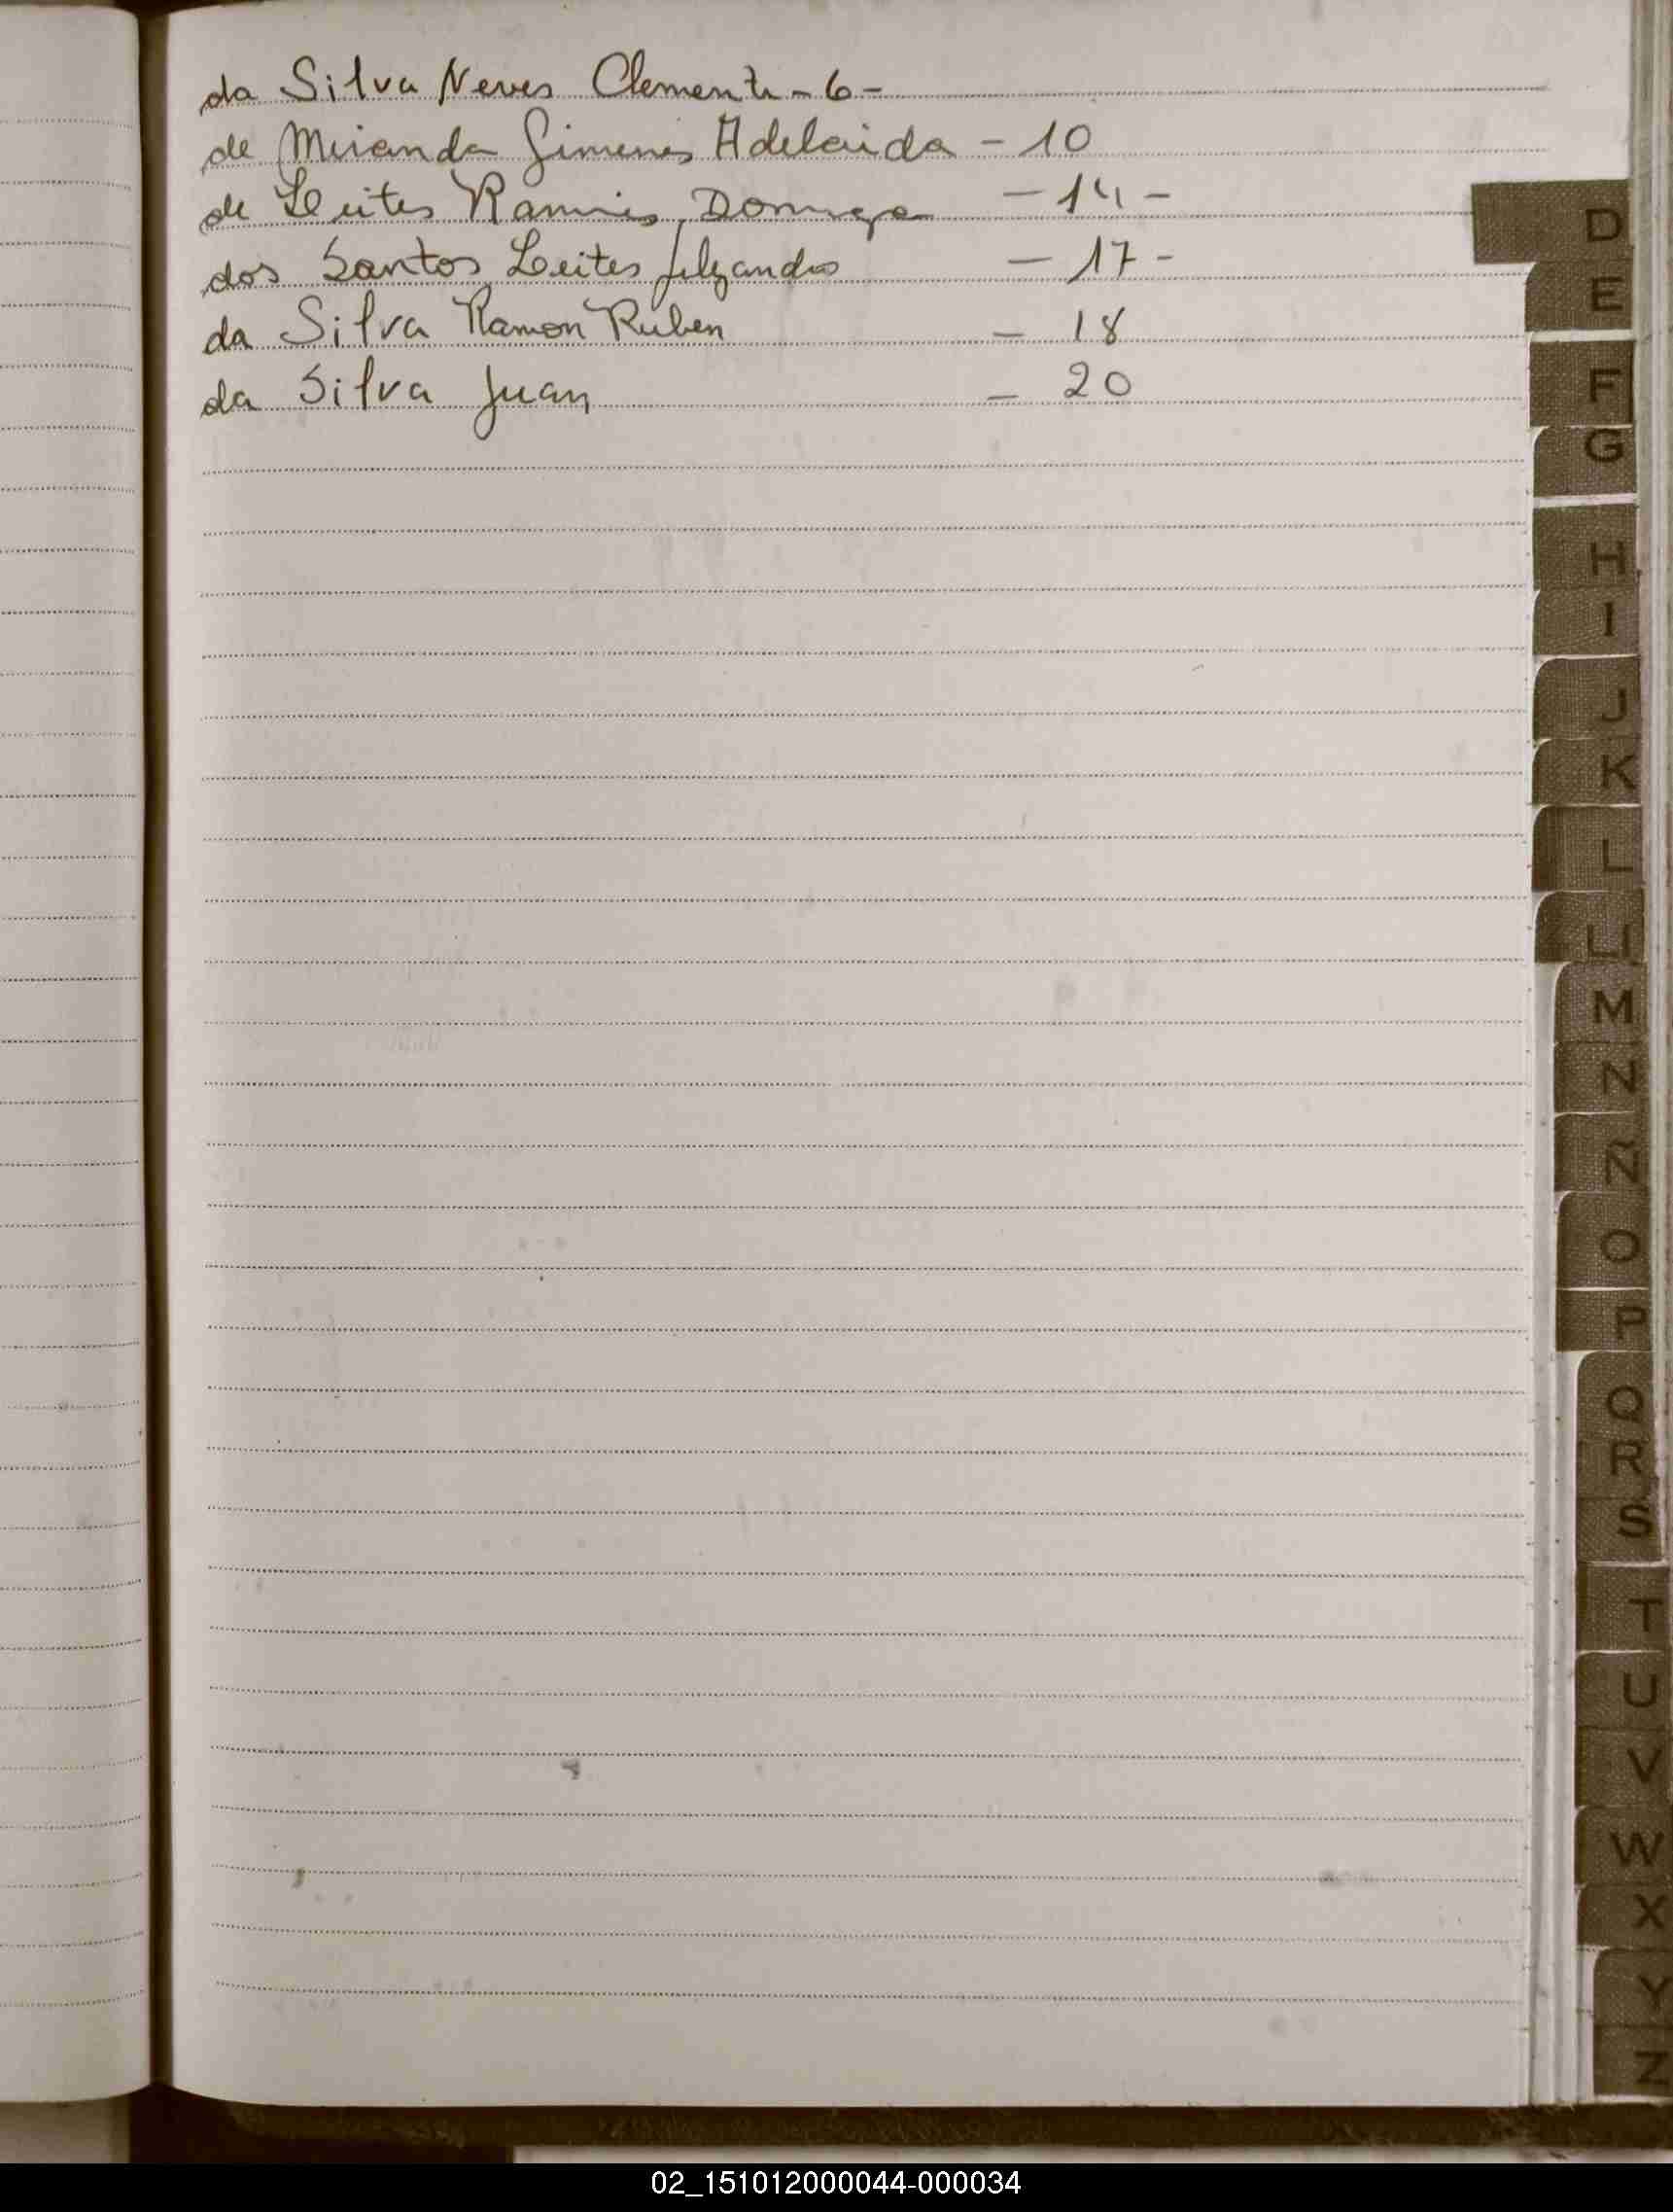 da Silva Neves Clemente - 6 -
de Miranda Gimenes Adelaida - 10
de Leites Ramires Dominga - 14 -
dos Santos Leites Alejandro - 17 -
da Silva Ramon Ruben - 18
da Silva Juan - 20
D
E
F
G
H
I
J
K
L
LL
M
N
Ñ
O
P
Q
R
S
T
U
V
W
X
Y
Z
02_151012000044-000034